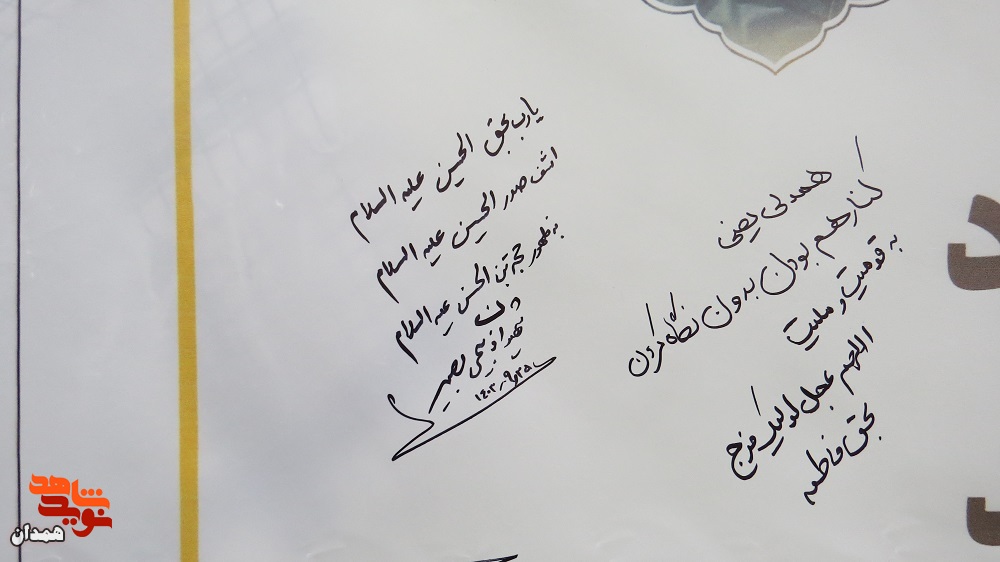 همدلی یعنی
کنار هم بودن بدون نگاه کردن
به قومیت و ملیت
اللهم عجل لولیک فرج
بحق فاطمه
یارب بحق الحسین علیه السلام
اشف صدر الحسین علیه السلام
به ظهور حجة بن الحسن علیه السلام
۱۴۰۲٫۹٫۲۵
شاهد
نوید
همدان